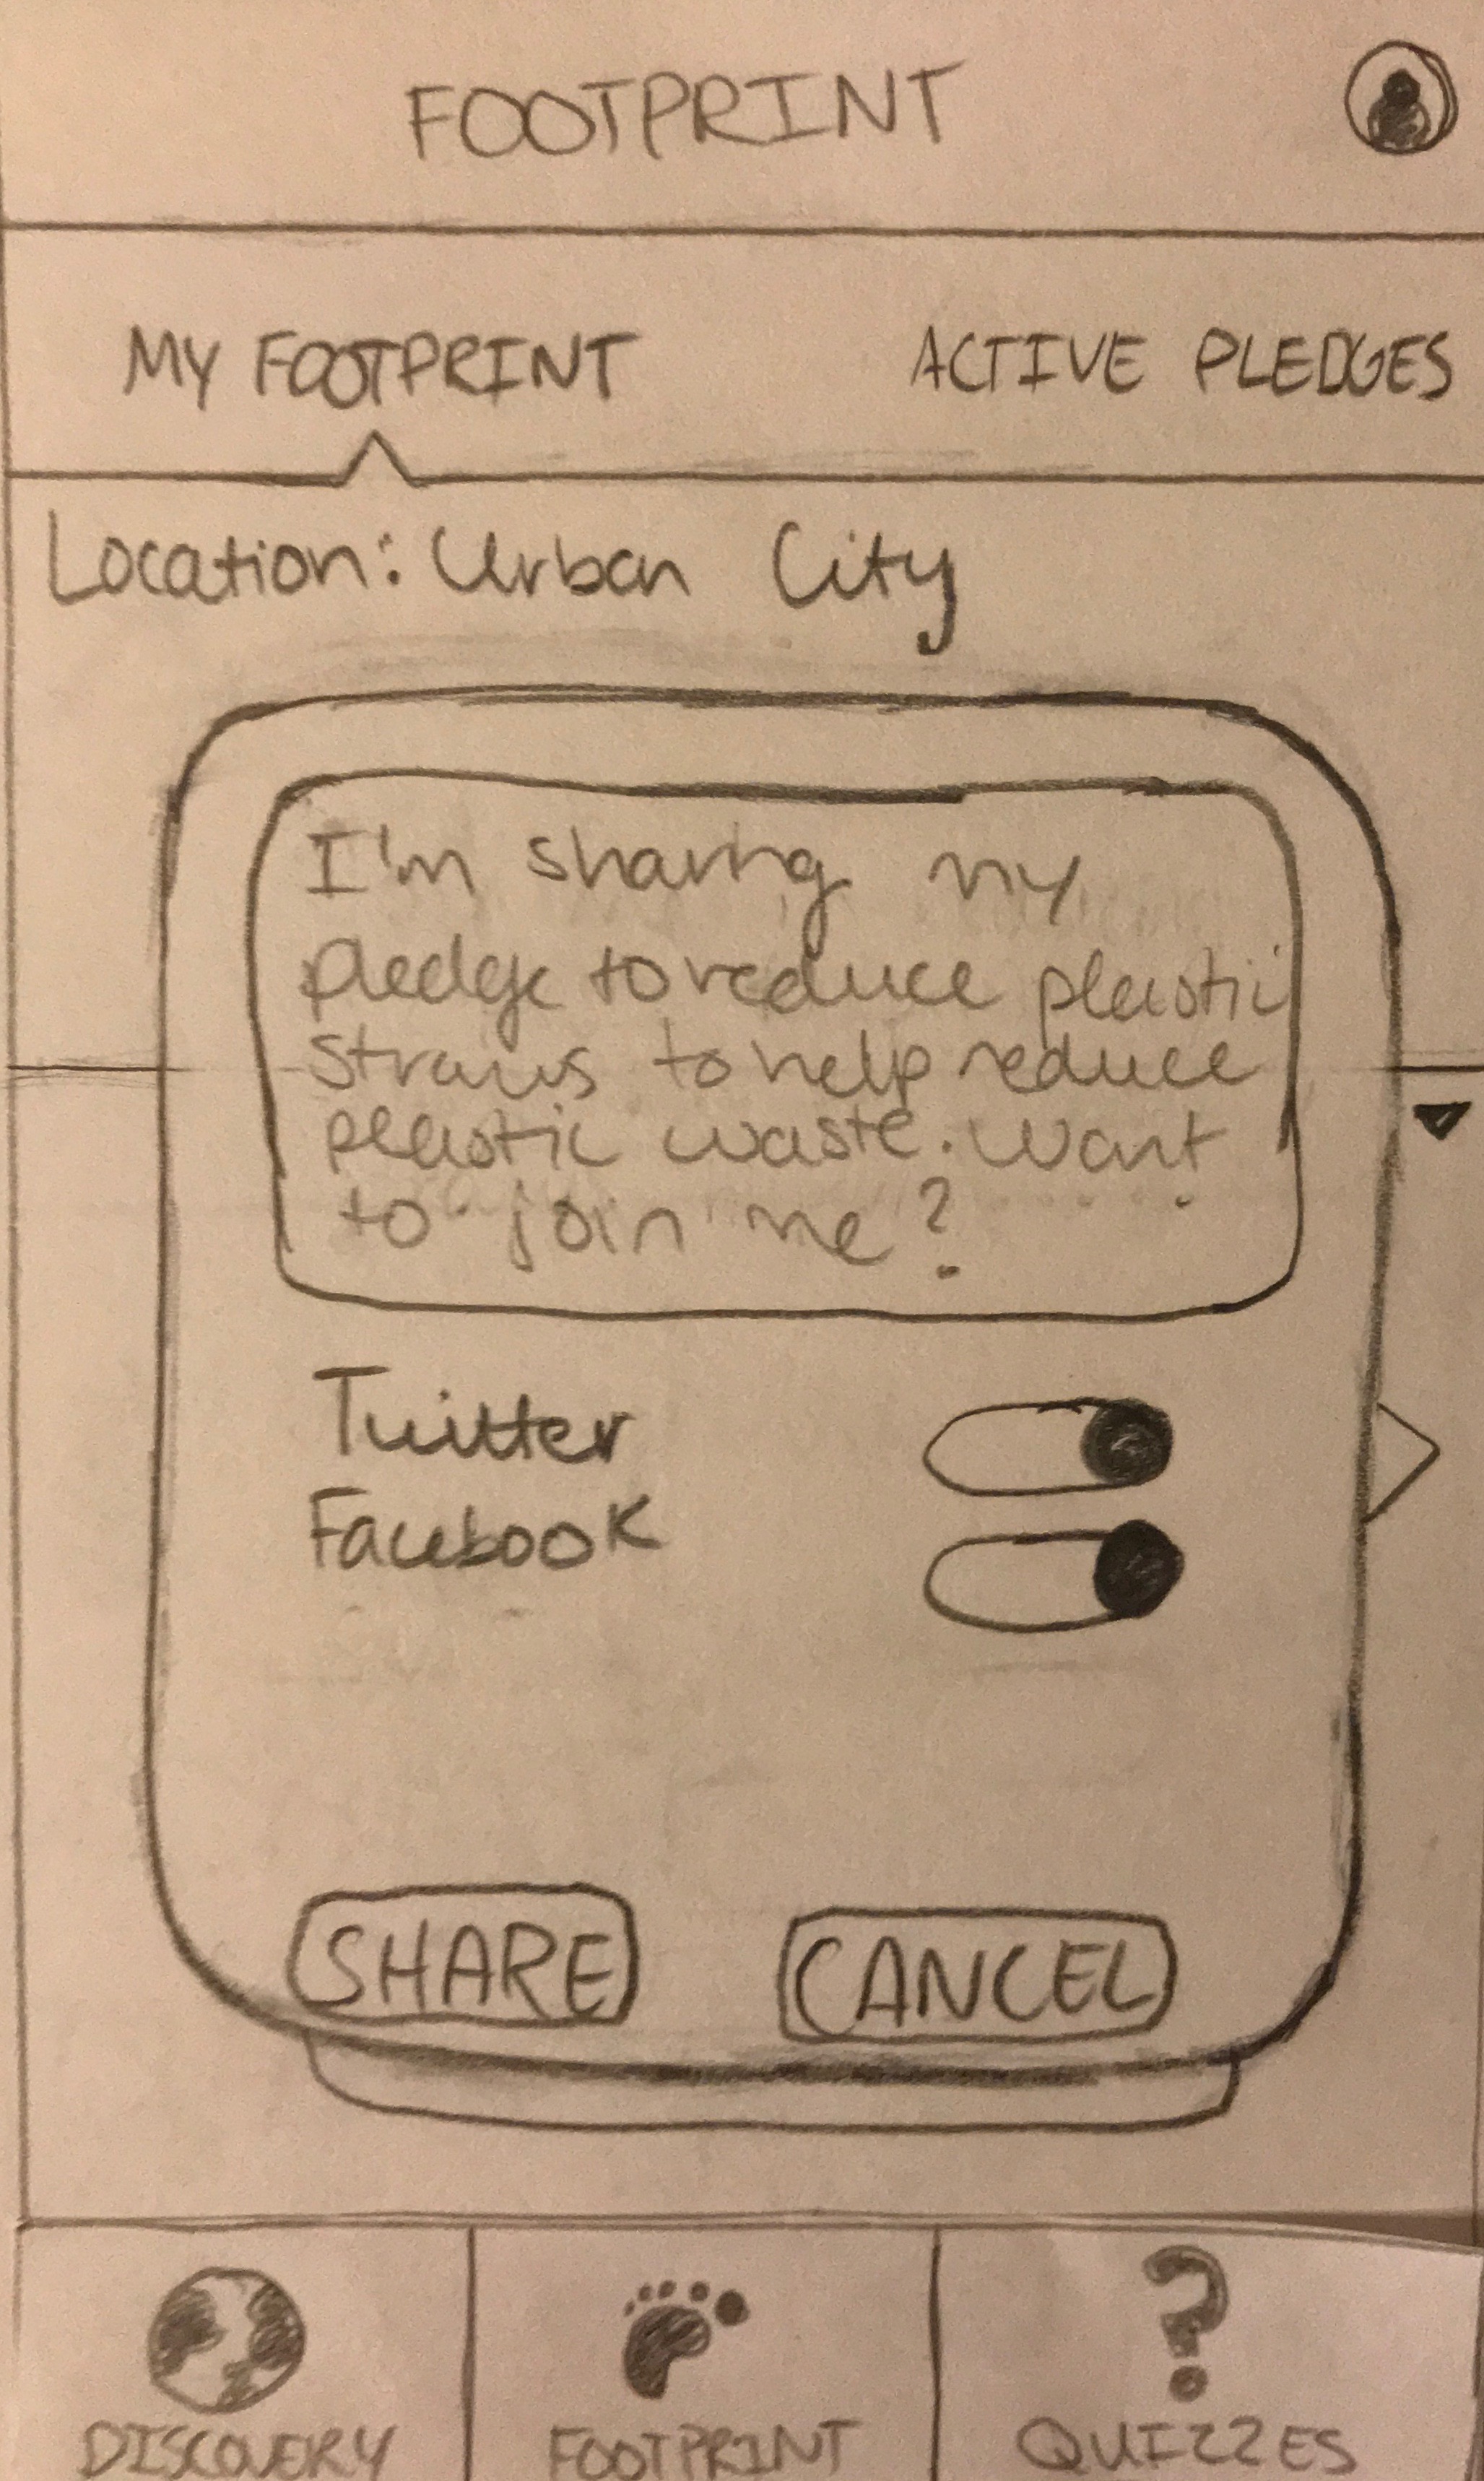 FOOTPRINT
MY FOOTPRINT ACTIVE PLEDGES
Location: Urban City
I'm sharing my
pledge to reduce plastic
straws to help reduce
plastic waste. Want
to join me?
Twitter
Facebook
SHARE CANCEL
DISCOVERY FOOTPRINT QUIZZES